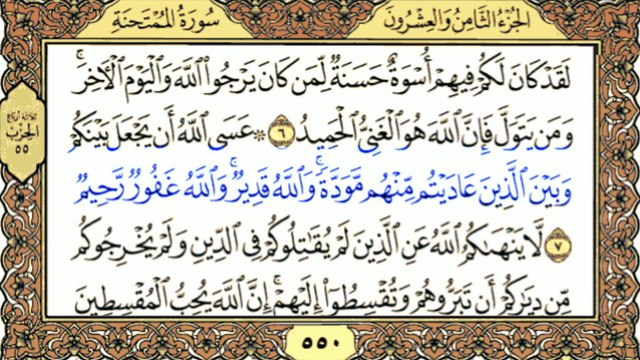 الجزء الثامن والعشرون
سورة الممتحنة
لَقَدْ كَانَ لَكُمْ فِيهِمْ أُسْوَةٌ حَسَنَةٌ لِّمَن كَانَ يَرْجُوا۟ ٱللَّهَ وَٱلْيَوْمَ ٱلْـَٔاخِرَ ۚ
وَمَن يَتَوَلَّ فَإِنَّ ٱللَّهَ هُوَ ٱلْغَنِىُّ ٱلْحَمِيدُ ٦ ۞ عَسَى ٱللَّهُ أَن يَجْعَلَ بَيْنَكُمْ
وَبَيْنَ ٱلَّذِينَ عَادَيْتُم مِّنْهُم مَّوَدَّةً ۚ وَٱللَّهُ قَدِيرٌ ۚ وَٱللَّهُ غَفُورٌ رَّحِيمٌ
٧ لَّا يَنْهَىٰكُمُ ٱللَّهُ عَنِ ٱلَّذِينَ لَمْ يُقَٰتِلُوكُمْ فِى ٱلدِّينِ وَلَمْ يُخْرِجُوكُم
مِّن دِيَٰرِكُمْ أَن تَبَرُّوهُمْ وَتُقْسِطُوٓا۟ إِلَيْهِمْ ۚ إِنَّ ٱللَّهَ يُحِبُّ ٱلْمُقْسِطِينَ
ثلاثة أرباع
الحزب
٥٥
٥٥٠